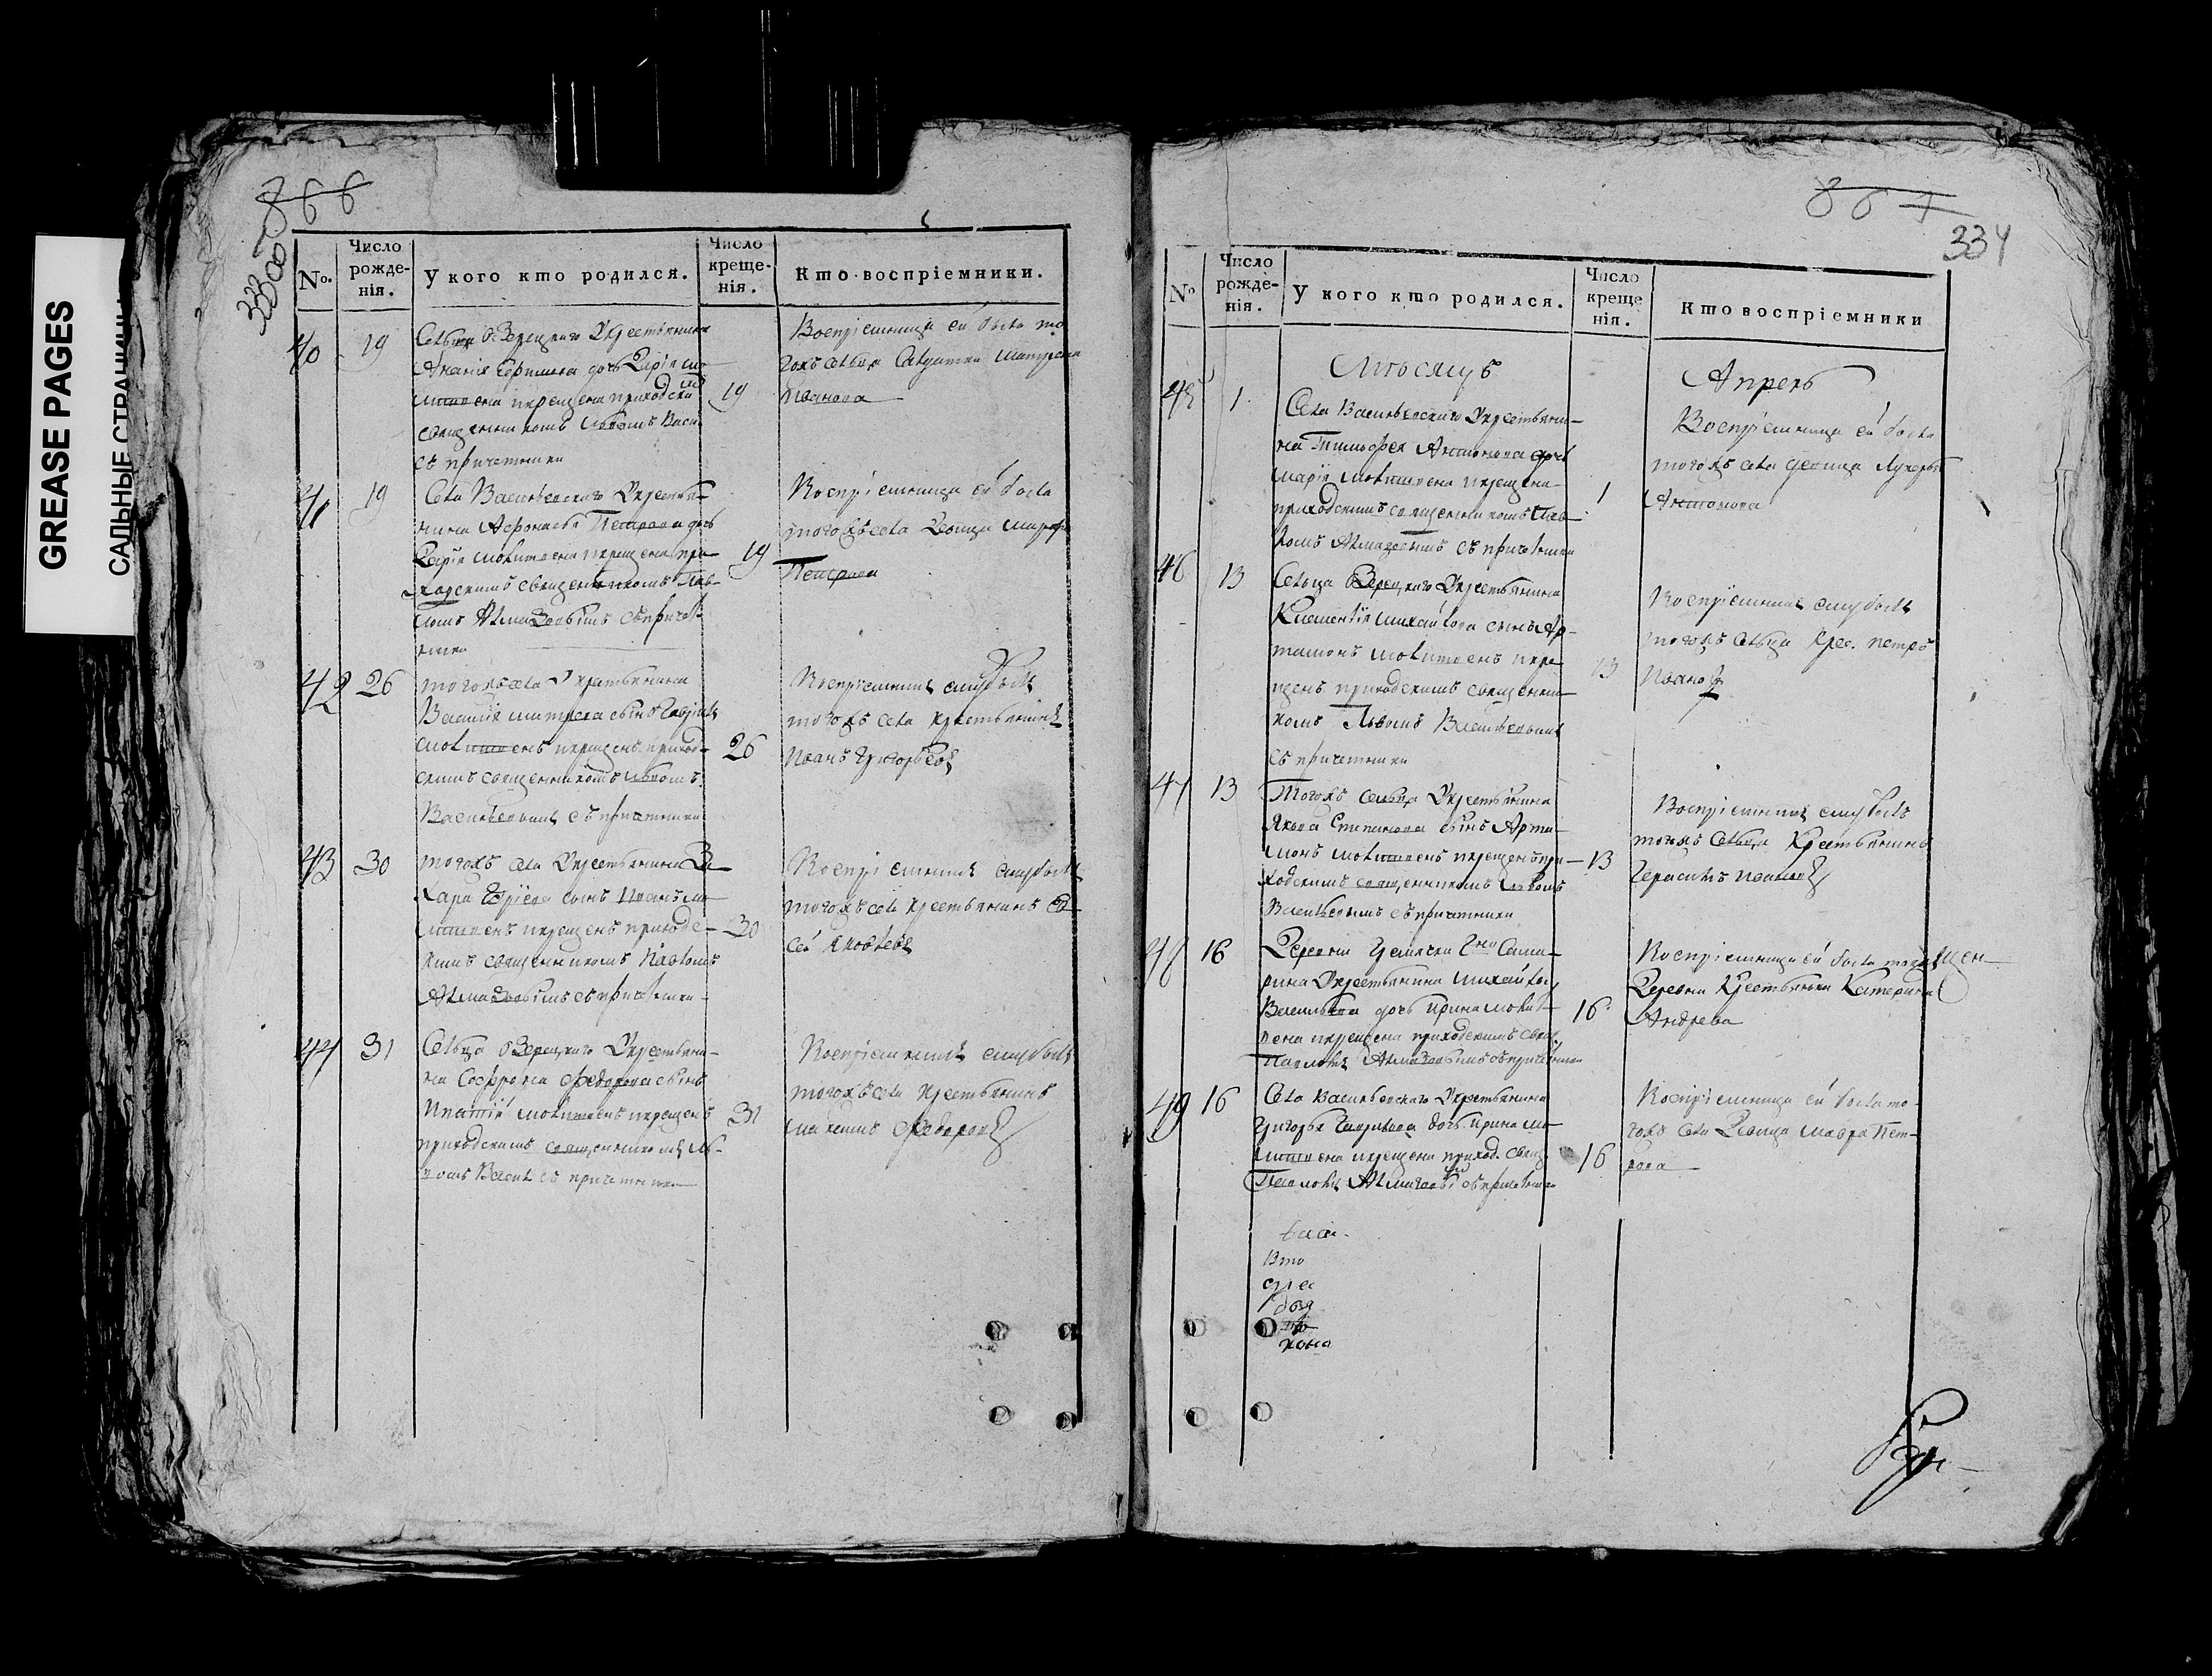 GREASE PAGES
САЛЬНЫЕ СТРАНИЦЫ
866
333об
No.
Число рожде-нія.
У кого кто родился.
Число креще-нія.
Кто воспріемники.
40 19 Сельца Озерецкаго Крестьянина
Ананія дочь Дарія мо
литвена крещена приходски
священникомъ Львомъ Васи
съ причетники
19
Воспріемница ей была то
гожъ сельца
Иванова
41 19 Села Васильевскаго Крестья-
нина Афонасья Петрова дочь
Дарія молитвена крещена при
ходскимъ священникомъ Пав-
ломъ Алмазовымъ съ причет-
ники
19
Воспріемница ей была
тогожъ села девица
Петрова
42 26 тогожъ села Крестьянина
сынъ Гавріилъ
молитвенъ крещенъ приход-
скимъ священникомъ Львомъ
Васильевымъ съ причетники
26
Воспріемникъ ему былъ
тогожъ села Крестьянинъ
Иванъ Григорьевъ
43 30 тогожъ села Крестьянина За
хара сынъ Иванъ мо
литвенъ крещенъ приходс-
кимъ священникомъ Павломъ
Алмазовымъ съ причетники
30
Воспріемникъ ему былъ
тогожъ села Крестьянинъ
сей Яковлевъ
44 31 Сельца Озерецкаго Крестьяни-
на Софрона Федорова сынъ
Ипатій молитвенъ крещенъ
приходскимъ священникомъ Ль-
вомъ Васил съ причетники
31
Воспріемникъ ему былъ
тогожъ села Крестьянинъ
Максимъ Федоровъ
867
334
No
Число рожде-нія.
У кого кто родился.
Число креще нія.
Кто воспріемники
Мѣсяцъ Апрель
45 1 Села Васильевскаго Крестьяни-
на Тимофея Антонова дочь
Марія молитвена крещена
приходскимъ священникомъ Пав-
ломъ Алмазовымъ съ причетники
1
Воспріемница ей была
тогожъ села девица Лукерья
Антонова
46 13 Сельца Озерецкаго Крестьянина
Климентія Михайлова сынъ Ар-
тамонъ молитвенъ кре
щенъ приходскимъ священни-
комъ Львомъ Васильевымъ
съ причетники
13
Воспріемникъ ему былъ
тогожъ сельца Крес. Петръ
Ивановъ
47 13 Тогожъ сельца Крестьянина
Якова Степанова сынъ Арта-
монъ молитвенъ крещенъ при-
ходскимъ священникомъ Львомъ
Васильевымъ съ причетники
13
Воспріемникъ ему былъ
тогожъ сельца Крестьянинъ
Герасимъ Ивановъ
48 16 Деревни Гна Сама-
рина Крестьянина Михайлы
Васильева дочь Ирина молит-
вена крещена приходскимъ свящ.
Павломъ Алмазовымъ съ причетники
16
Воспріемница ей была тойжъ
Деревни Крестьянка Катерина
Андрева
49 16 Села Васильевскаго Крестьянина
Григорья Гаврилова дочь Ирина мо-
литвена крещена приход. свящ.
Павломъ Алмазовы съ причетники
16
Воспріемница ей была то-
гожъ села Девица Мавра Пет-
рова